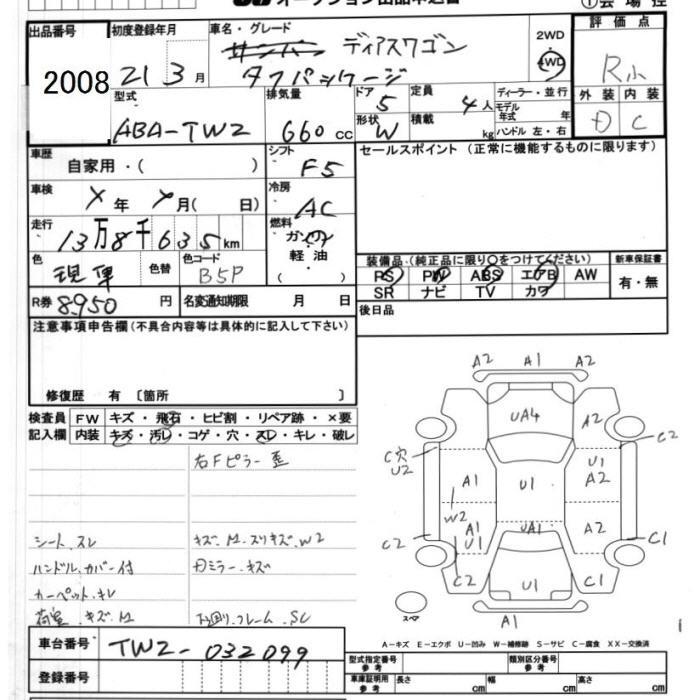 オークション出品申込書
①会場控
出品番号 初度登録年月 車名・グレード 2WD 評価点
2008 21 3月 サンバー ディアスワゴン 4WD R小
タフパッケージ
型式 排気量 ドア 5 定員 4人 ディーラー・並行 外装 内装
モデル年式 年
ABA-TW2 660cc 形状 W 積載 kg ハンドル 左・右 D C
車歴 シフト セールスポイント (正常に機能するものに限ります)
自家用・( ) F5
車検 冷房
メ年 メ月( 日) AC
走行 燃料
13万8千635km ガソリン
軽油
( )
色 色替 色コード 装備品(純正品に限り○をつけてください) 新車保証書
B5P PS PW ABS エアB AW 有・無
SR ナビ TV カワ
R券 8950円 名変通知期限 月 日 後日品
注意事項申告欄(不具合内容等は具体的に記入して下さい)
修復歴 有 〔箇所 〕
検査員 FW キズ・飛石・ヒビ割・リペア跡・×要
記入欄 内装 キズ・汚レ・コゲ・穴・スレ・キレ・破レ
右Fピラー歪
シート、スレ キズ、M、スリキズ、W2
ハンドル、カバー付 ミラー、キズ
カーペット、キレ
荷室、キズ、M 下回り、フレーム、SC
A2 A1 A2
UA4 A2
C穴 U2 C2
A1 U1 U1 A2
W2
A1 U1 UA1 A2
C2 C1
C2 U1 C1
スペア A1
A-キズ E-エクボ U-凹み W-補修跡 S-サビ C-腐食 XX-交換済
車台番号 TW2-032099
型式指定番号 参考 類別区分番号 参考
登録番号 車庫証明用 参考 長さ cm 幅 cm 高さ cm